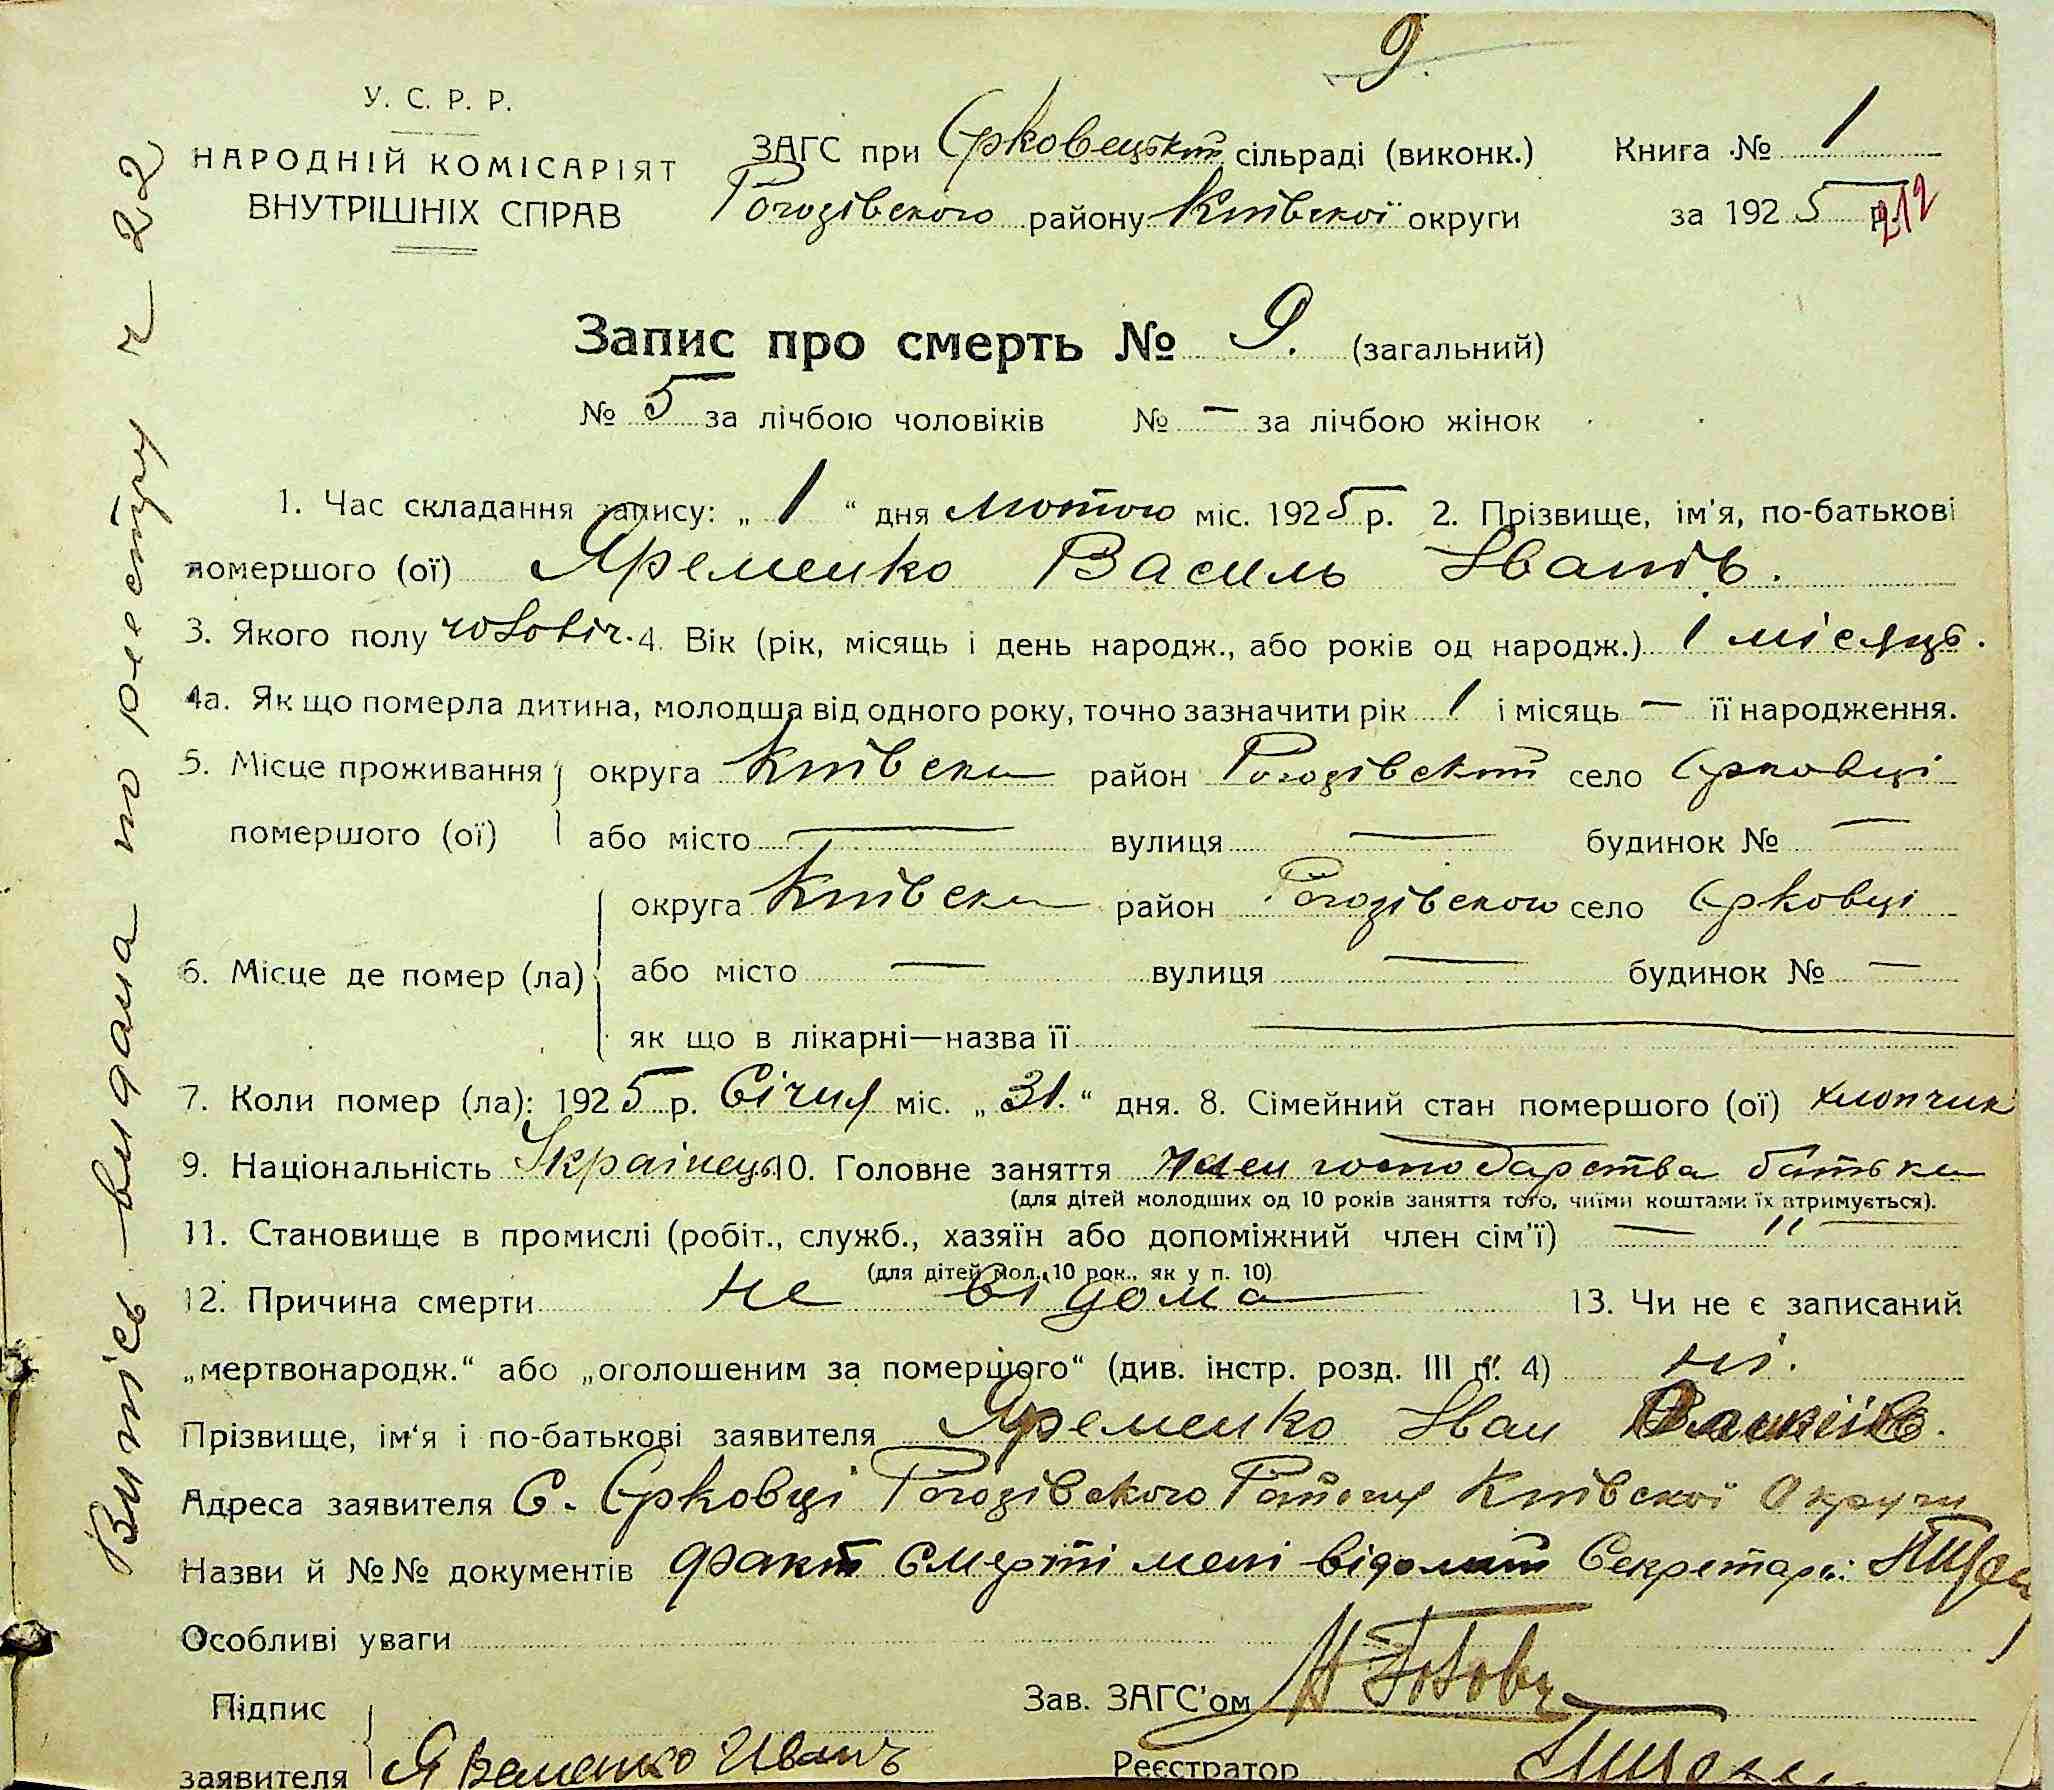 9.
У. С. Р. Р.
НАРОДНІЙ КОМІСАРІЯТ
ВНУТРІШНІХ СПРАВ
ЗАГС при Єрковецькій сільраді (виконк.)
Рогозівського району Київскої округи
Книга № 1
за 1925 р.
212
Запис про смерть № 9. (загальний)
№ 5 за лічбою чоловіків № — за лічбою жінок
1. Час складання запису: „ 1 “ дня лютого міс. 1925 р. 2. Прізвище, ім'я, по-батькові
помершого (ої) Яременко Василь Іванів.
3. Якого полу чоловіч. 4. Вік (рік, місяць і день народж., або років од народж.) 1 місяць.
4а. Як що померла дитина, молодша від одного року, точно зазначити рік 1 і місяць — її народження.
5. Місце проживання округа Київска район Рогозівский село Єрковці
помершого (ої) або місто — вулиця — будинок № —
округа Київска район Рогозівского село Єрковці
6. Місце де помер (ла) або місто — вулиця — будинок № —
як що в лікарні—назва її —
7. Коли помер (ла): 1925 р. Січня міс. „ 31. “ дня. 8. Сімейний стан помершого (ої) хлопчик
9. Національність Украінець 10. Головне заняття член господарства батька
(для дітей молодших од 10 років заняття того, чиїми коштами їх втримується).
11. Становище в промислі (робіт., служб., хазяїн або допоміжний член сім'ї) — „ —
(для дітей мол. 10 рок., як у п. 10)
12. Причина смерти не відома 13. Чи не є записаний
„мертвонародж.“ або „оголошеним за помершого“ (див. інстр. розд. III п. 4) ні.
Прізвище, ім'я і по-батькові заявителя Яременко Іван
Адреса заявителя с. Єрковці Рогозівского Району Київскої Округи
Назви й №№ документів факт смерти мені відомий Секретарь:
Особливі уваги
Підпис
заявителя Яременко Иванъ
Зав. ЗАГС'ом
Реєстратор
Випись видана по реєстру ч 22